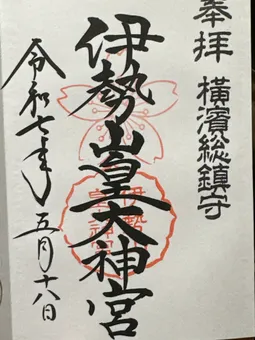 奉拝
横濱総鎮守
伊勢山皇大神宮
令和七年五月十八日